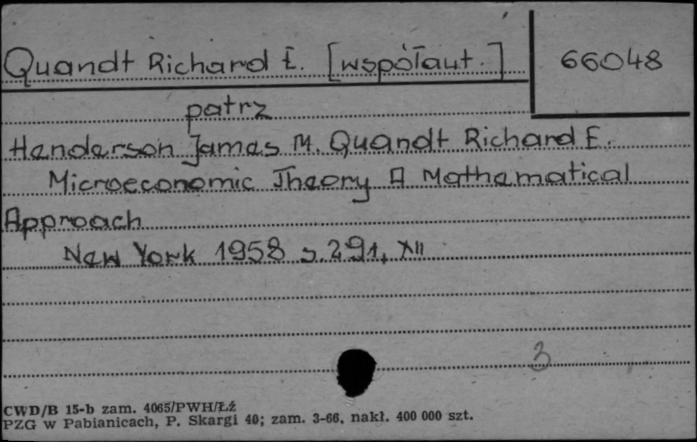 Quandt Richard E. [współaut.]
66048
patrz
Henderson James M. Quandt Richard E.
Microeconomic Theory A Mathematical
Approach
New York 1958 s. 291, XII
3
CWD/B 15-b zam. 4065/PWH/Łź
PZG w Pabianicach, P. Skargi 40; zam. 3-66, nakł. 400 000 szt.